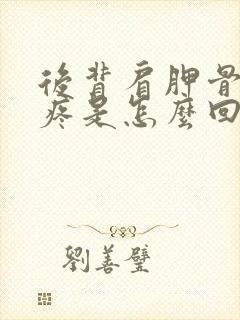 後背肩胛骨
疼是怎麼回
劉善璧